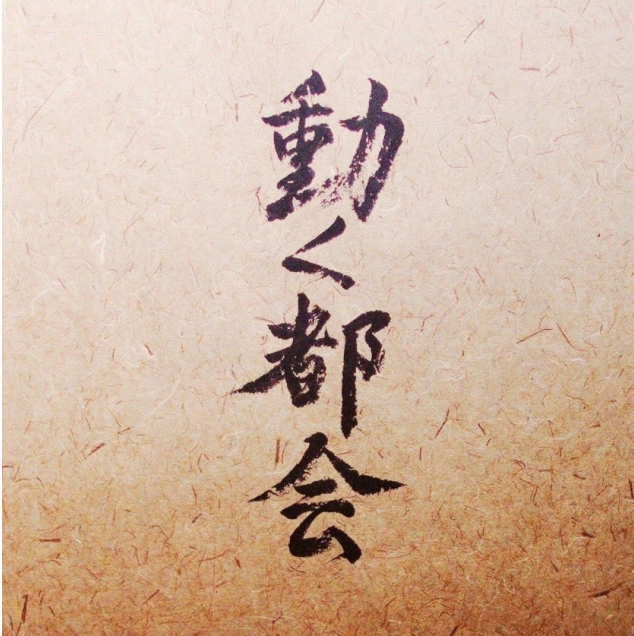 動く都会